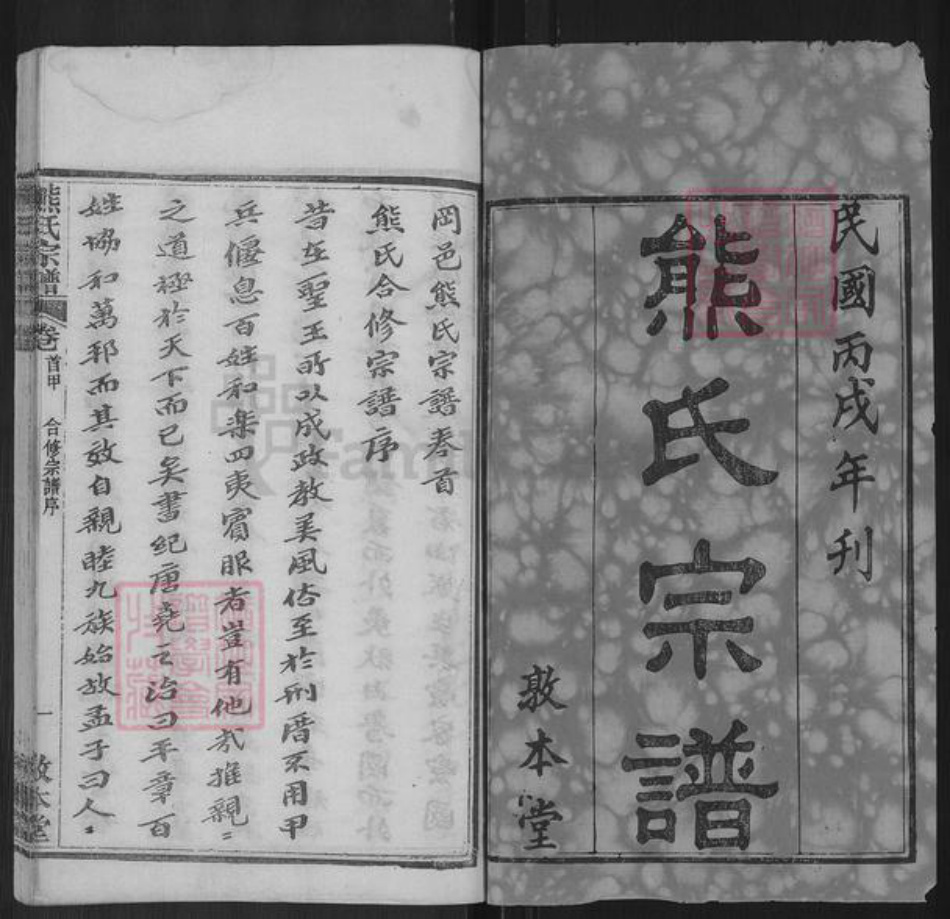 民國丙戌年刋
熊氏宗譜
敦本堂
岡邑熊氏宗譜卷首
熊氏合修宗譜序
昔在聖王所以成政教美風俗至於刑厝不用甲
兵偃息百姓和樂四夷賓服者豈有他哉推親〻
之道極於天下而已矣書紀唐堯之治曰平章百
姓協和萬邦而其效自親睦九族始故孟子曰人〻
熊氏宗譜 卷首甲 合修宗譜序 一 敦本堂